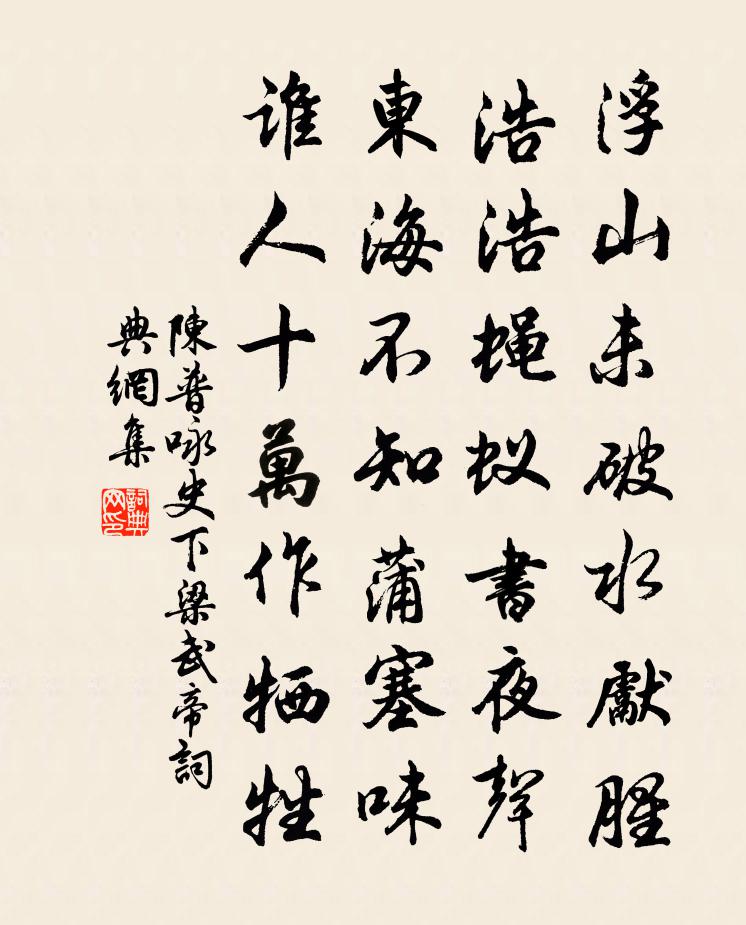 浮山未破水獻腥
浩浩蝇蚁書夜聲
東海不知蒲塞味
誰人十萬作牺牲
陳普咏史下梁武帝詞
典網集
詞典
网印